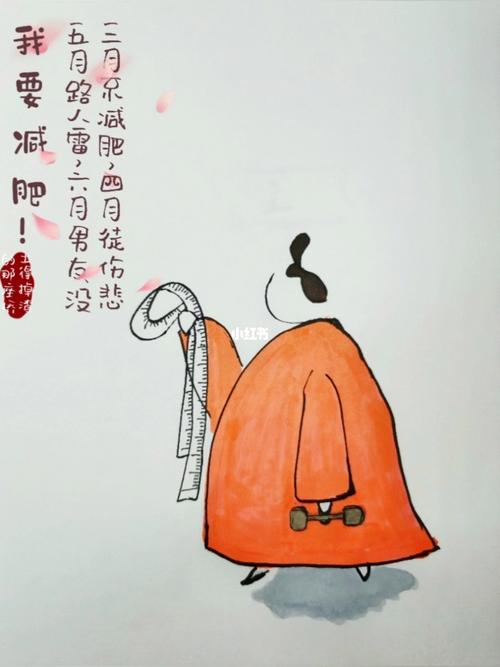 三月不減肥，四月徒伤悲
五月路人雷，六月男友没
我要減肥！
小红书